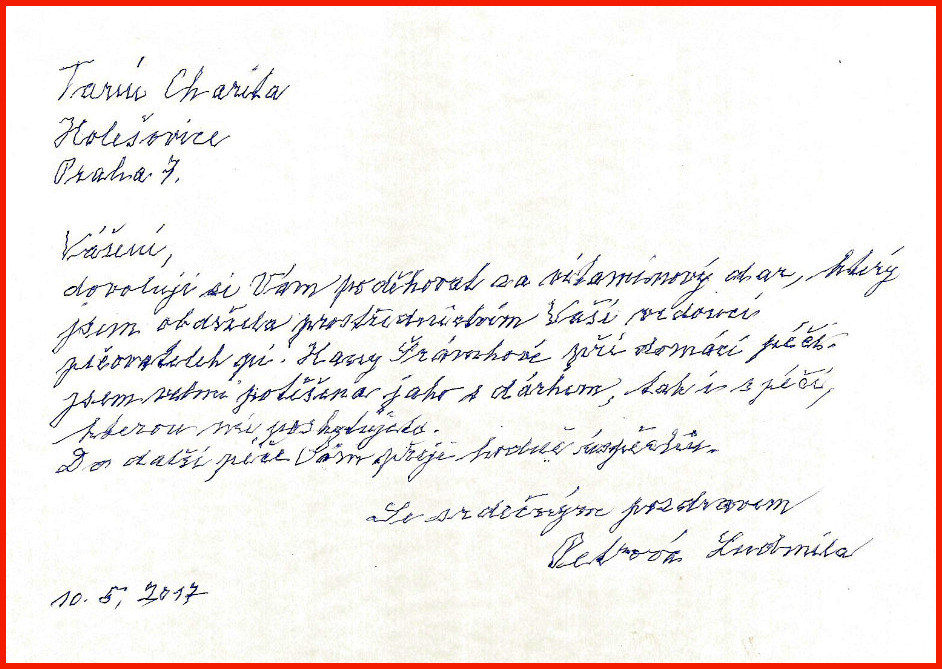 Farní Charita
Holešovice
Praha 7.
Vážení,
dovoluji si Vám poděkovat za vitamínový dar, který
jsem obdržela prostřednictvím Vaší vedoucí
pečovatelek pí. Hany Fránkové při domácí péči.
jsem velmi potěšena jako s dárkem, tak i s péčí,
kterou mi poskytujete.
Do další péče Vám přeji hodně úspěchů.
Se srdečným pozdravem
Petrová Ludmila
10. 5. 2017